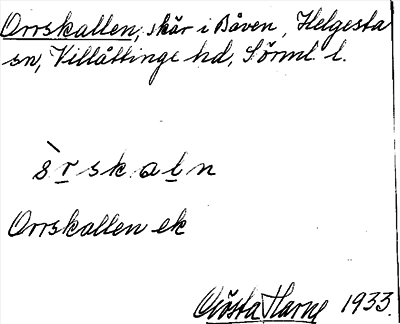 Orrskallen, skär i Båven, Helgesta
sn, Villåttinge hd, Sörml. l.
skaln
Orrskallen ek
Gösta Harne 1933.